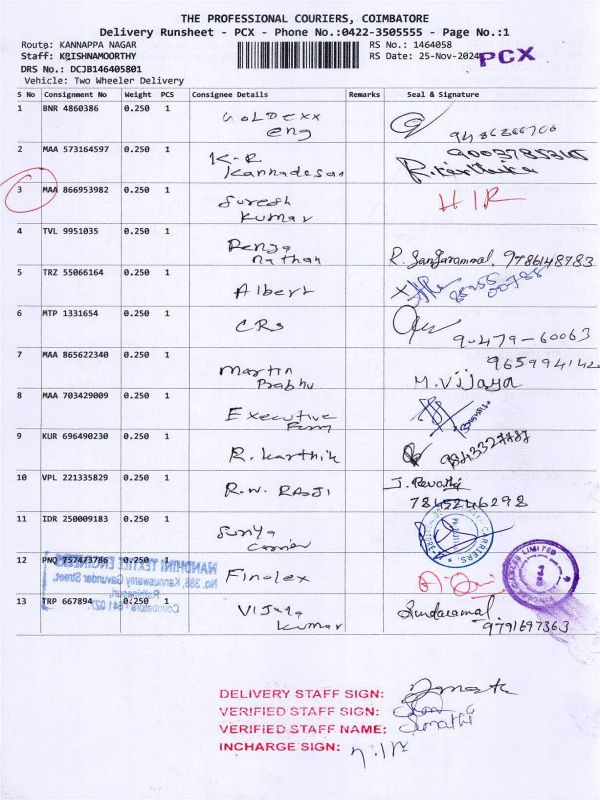 THE PROFESSIONAL COURIERS, COIMBATORE
Delivery Runsheet - PCX - Phone No.:0422-3505555 - Page No.:1
Route: KANNAPPA NAGAR RS No.: 1464058
Staff: KRISHNAMOORTHY RS Date: 25-Nov-2024 PCX
DRS No.: DCJB146405801
Vehicle: Two Wheeler Delivery
S No Consignment No Weight PCS Consignee Details Remarks Seal & Signature
1 BNR 4860386 0.250 1 GOLDEXX
eng
2 MAA 573164597 0.250 1 K-R 9003785365
Kannadesan R.Karthika
3 MAA 866953982 0.250 1 Suresh HIR
Kumar
4 TVL 9951035 0.250 1 Renga
nathan R. 9786148783
5 TRZ 55066164 0.250 1 Albert
6 MTP 1331654 0.250 1 CRs 90479-60063
7 MAA 865622340 0.250 1 Martin 9659941420
Prabhu M.Vijaya
8 MAA 703429009 0.250 1 Executive
Farm
9 KUR 696490230 0.250 1 R.Karthik 9843327787
10 VPL 221335829 0.250 1 R.W. RASJI J. Revathi
7845246298
11 IDR 250009183 0.250 1 Surya CARRIERS
Carrier
12 PNQ 757473786 0.250 1 Finolex LIMITED
NANDHINI TEXTILE ENGINEERS
No. 386, Kannuswamy Gavundar Street,
Coimbatore - 641 027.
13 TRP 667894 0.250 1 Vijaya Sundaramal
Kumar 9791697363
DELIVERY STAFF SIGN:
VERIFIED STAFF SIGN:
VERIFIED STAFF NAME: Sumathi
INCHARGE SIGN: